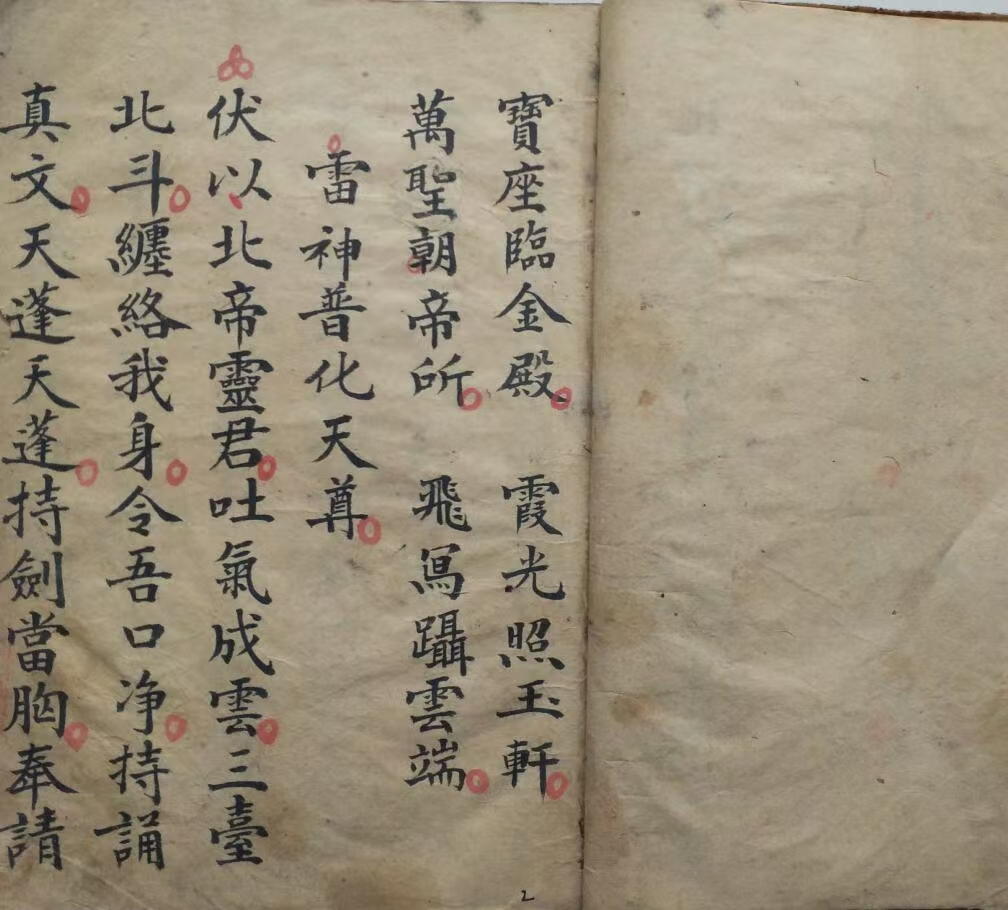 寶座臨金殿 霞光照玉軒
萬聖朝帝所 飛舄躡雲端
雷神普化天尊
伏以北帝靈君吐氣成雲三臺
北斗纏絡我身令吾口净持誦
真文天蓬天蓬持劍當胸奉請
2